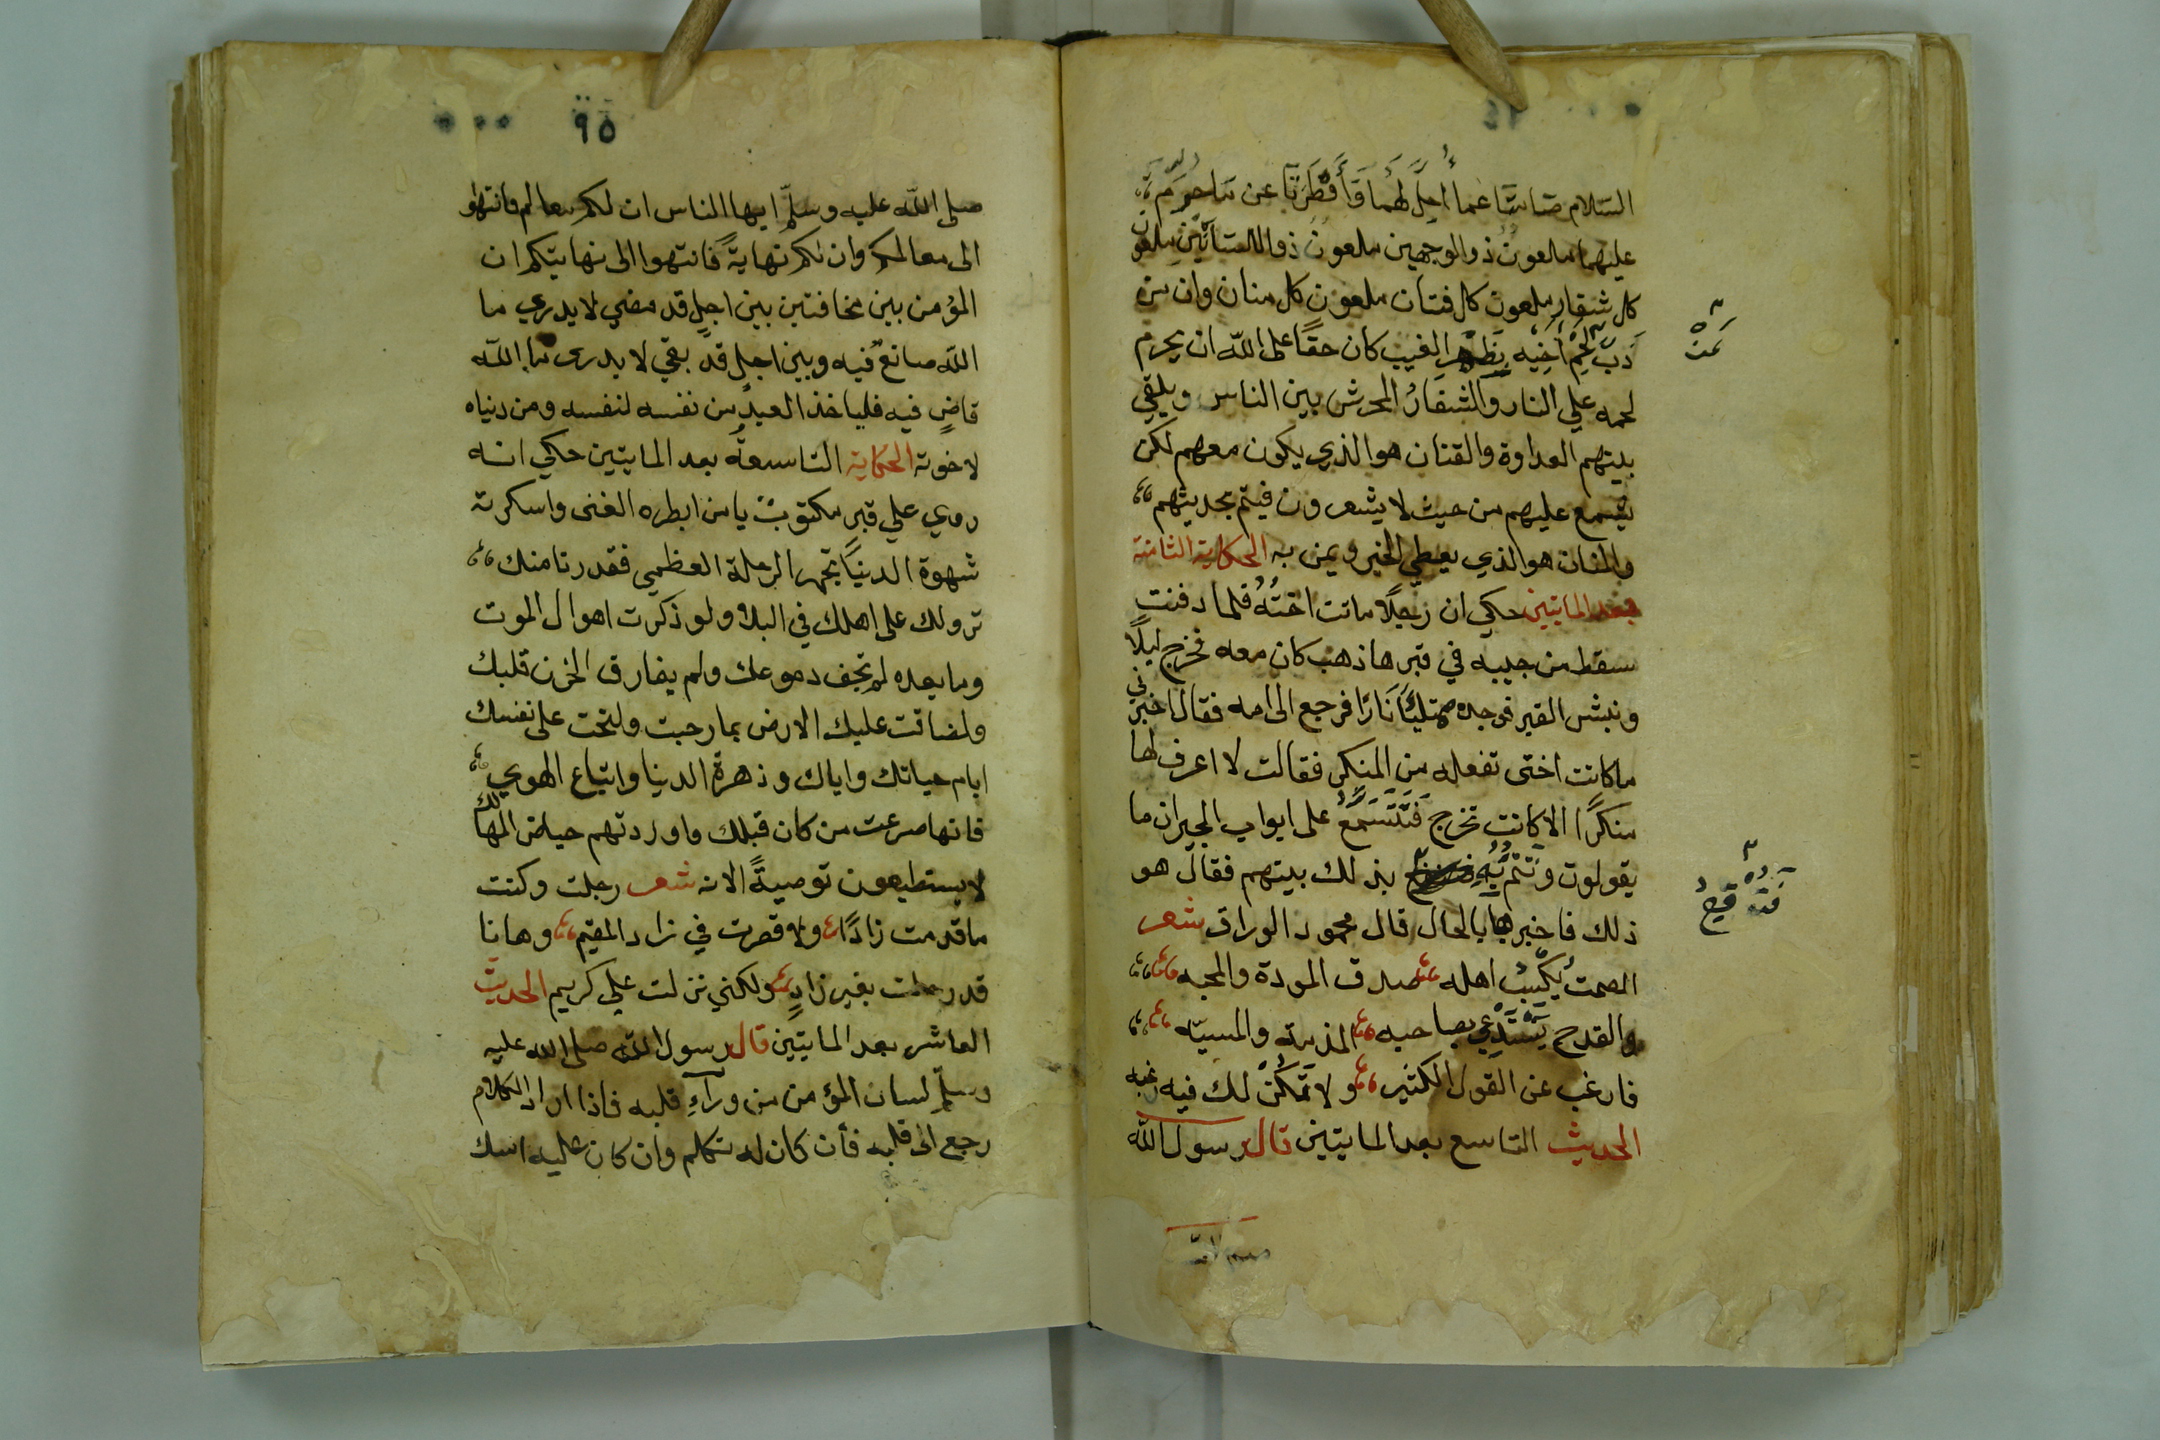 السلام صامتا عما احل لهما وأفطرتا عن ما حرم
عليهما ملعون ذو الوجهين ملعون ذو اللسانين ملعون
كل شقار ملعون كل فتان ملعون كل منان وان من
ذب لحم أخيه بظهر الغيب كان حقًا على الله ان يحرم
لحمه علي النار والشقار المحرش بين الناس ويلقي
بينهم العداوة والقتات هو الذي يكون معهم لكن
يتسمع عليهم من حيث لا يشعرون فيتم بحديثهم
والمنان هو الذي يعطي الخير ويمن به الحكاية الثامنة
بعد المايتين حكي ان رجلًا ماتت اختُهُ فلما دفنت
سقط من جيبه في قبرها ذهب كان معه فخرج ليلًا
ونبش القبر فوجده ممتليًا نارًا فرجع الى امه فقال اخبرني
ما كانت اختى تفعله من المنكر فقالت لا اعرف لها
منكرًا الا كانت تخرج فَتَتَسَمَّعُ على ابواب الجيران ما
يقولون وتنم بذلك بينهم فقال هو
ذلك فاخبرها بالحال قال محمود الوراق شعر
الصمت يُكسب اهله صدق المودة والمحبه
والقدح يَسْتَدْعِي بصاحبه المذمة والمسبّه
فارغب عن القول الكثير ولا تكن لك فيه رغبه
الحديث التاسع بعد المايتين قال رسول الله
٩٥
صلى الله عليه وسلّم ايها الناس ان لكم معالم فانتهوا
الى معالمكم وان لكم نهايةً فانتهوا الى نهايتكم ان
المؤمن بين مخافتين بين اجلٍ قد مضي لا يدري ما
الله صانعٌ فيه وبين اجلٍ قد بقي لا يدرى ما الله
قاضٍ فيه فلياخذ العبد من نفسه لنفسه ومن دنياه
لاخوته الحكاية التاسعةُ بعد المايتين حكي انه
روي علي قبر مكتوبٌ يا من ابطره الغنى واسكرته
شهوة الدنيا تجهز الرحلة العظمي فقد دنا منك
نزولك على اهلك في البلا ولو ذكرت اهوال الموت
وما بعده لم تجف دموعك ولم يفارق الحزن قلبك
ولضاقت عليك الارض بما رحبت ولنحت على نفسك
ايام حياتك واياك وزهرة الدنيا واتباع الهوي
فانها صرعت من كان قبلك واوردتهم حياض المهالك
لا يستطيعون توصيةً الانه شعر رحلت وكنت
ما قدمت زادًا ولا قصرت في زاد المقيم وها نا
قد رحلت بغير زادٍ ولكني نزلت علي كريم الحديث
العاشر بعد المايتين قال رسول الله صلى الله عليه
وسلم لسان المؤمن من ورآء قلبه فاذا اراد الكلام
رجع الى قلبه فأن كان له تكلم وان كان عليه امسك